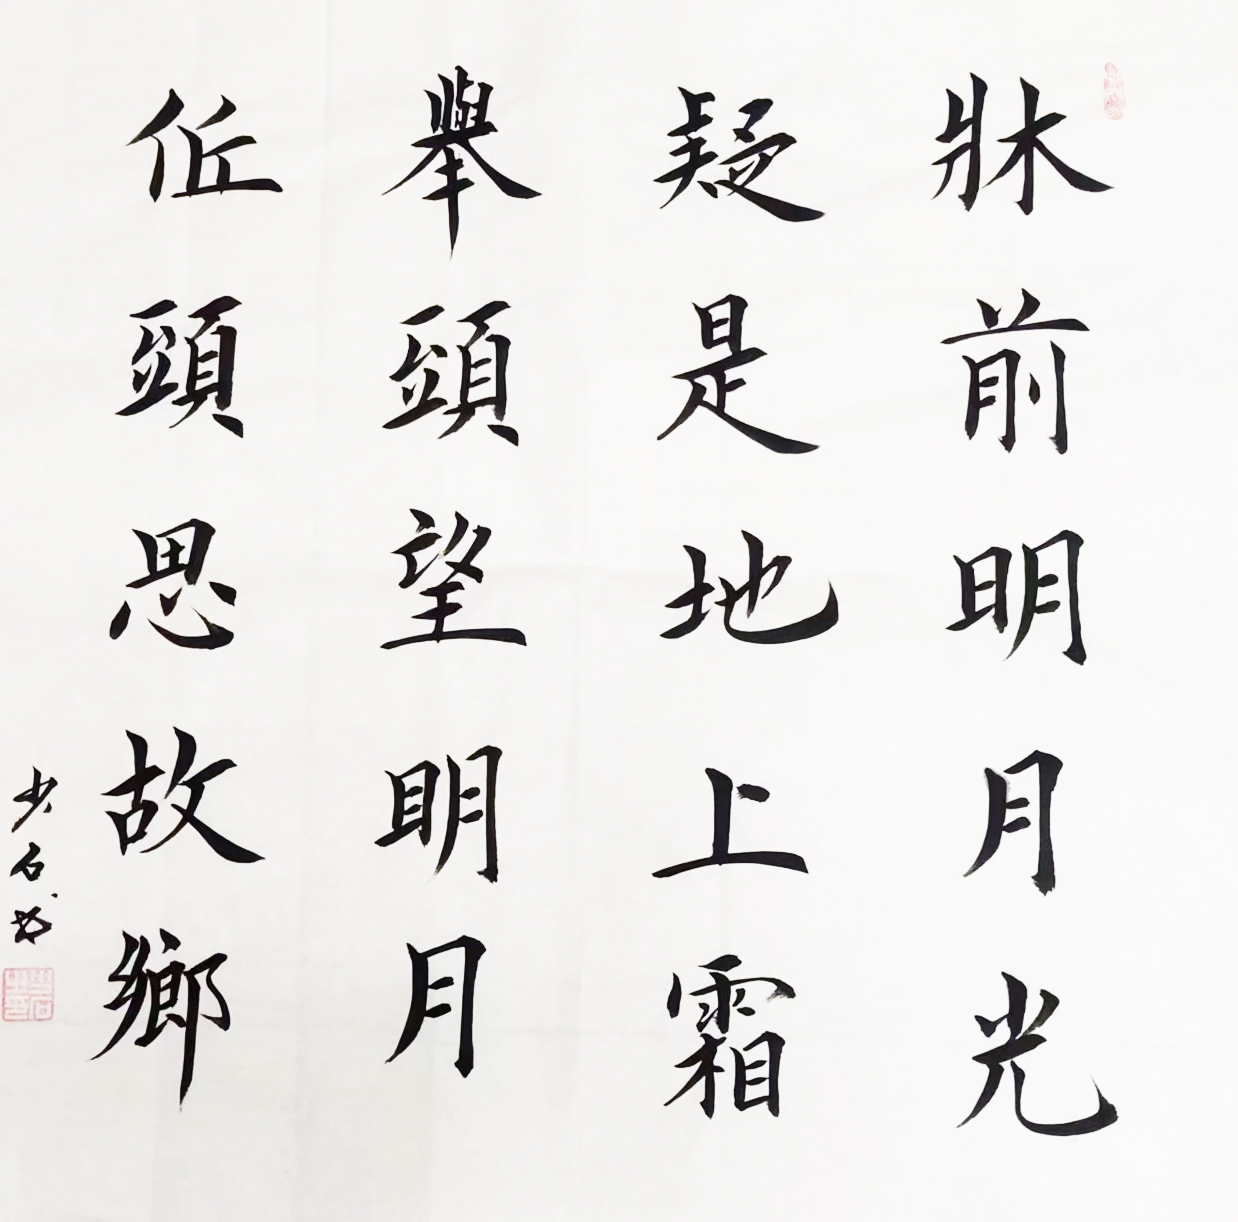 牀前明月光
疑是地上霜
舉頭望明月
低頭思故鄉
少石书